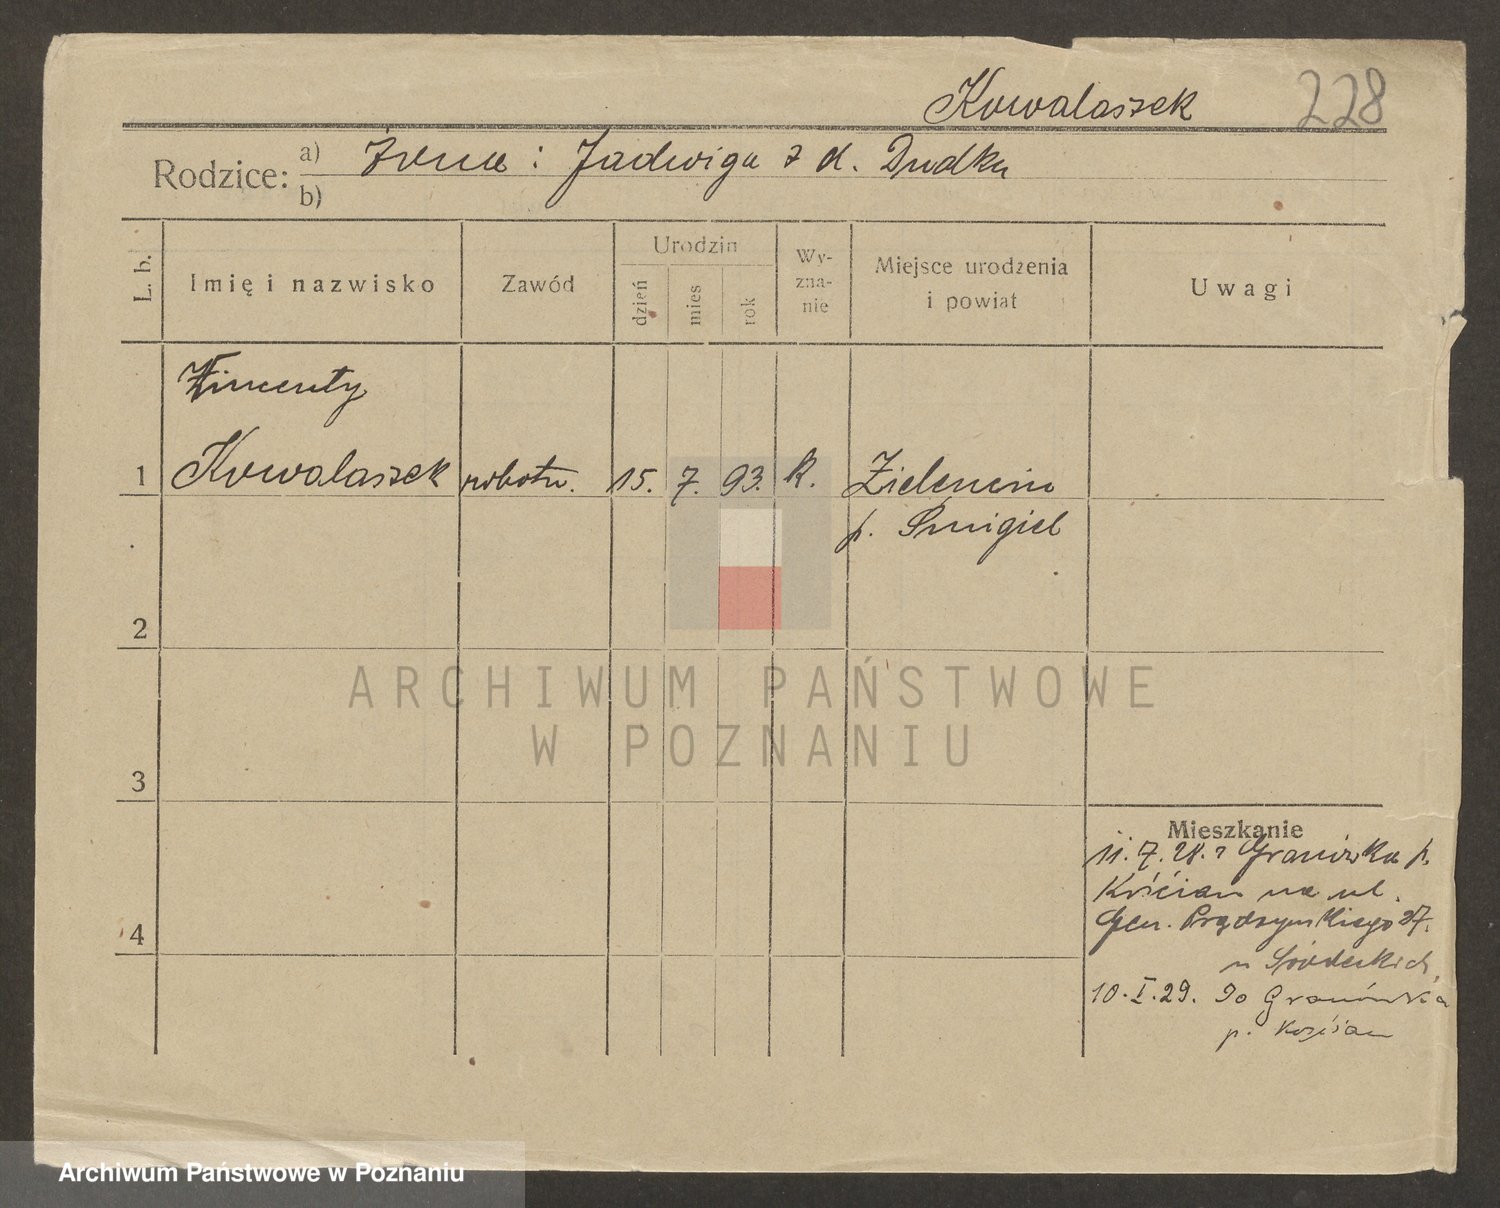 Kowalaszek 228
Rodzice: a) : Jadwiga z d. Dudka
b)
L. b. Imię i nazwisko Zawód Urodzin dzień mies rok Wy-zna-nie Miejsce urodzenia i powiat Uwagi
Wincenty
1 Kowalaszek robotn. 15. 7. 93. k. Zielencin
p. Śmigiel
2
3
Mieszkanie
11.7.28. z Granówka p.
Kościan na ul.
4 Gen. Prądzyńskiego 27.
u
10.I.29. Do Granówka
p. Kościan
ARCHIWUM PAŃSTWOWE
W POZNANIU
Archiwum Państwowe w Poznaniu